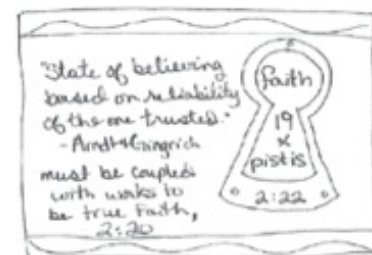 "State of believing
based on reliability
of the one trusted."
-Arndt & Gingrich
must be coupled
with works to
be true faith,
2:20
faith
19
x
pistis
2:22